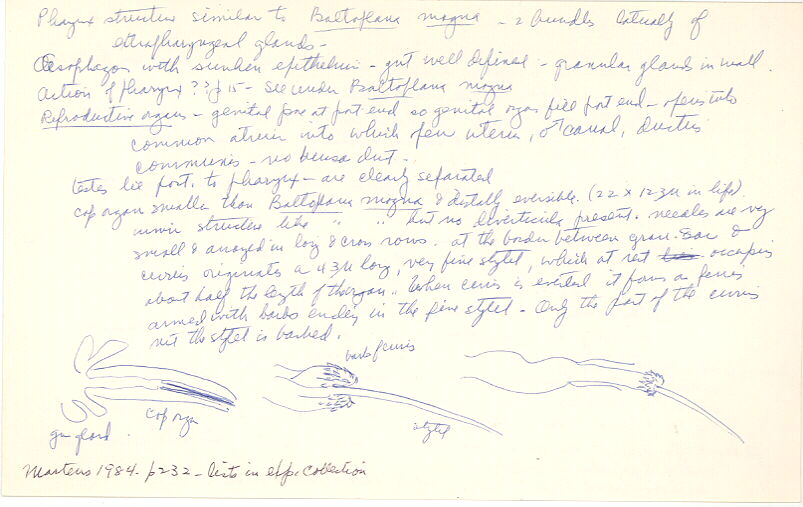 Pharynx structure similar to Baltoplana magna - 2 bundles laterally of
extrapharyngeal glands -
Oesophagus with sunken epithelium - gut well defined - granular glands in wall.
Action of Pharynx ?? p 15 - see under Baltoplana magna
Reproductive organs - genital pore at post end so genital organs fill post end - opens into
common atrium into which open uterus, ♂ canal, ductus
communis - no bursa duct -
testes lie post. to pharynx - are clearly separated
cop organ smaller than Baltoplana magna & distally eversible. (22 x 123µ in life).
inner structure like " " but no diverticula present. needles are very
small & arranged in long & cross rows. at the border between gran. sac &
cirrus originates a 43µ long, very fine stylet, which at rest occupies
about half the length of the organ. When cirrus is everted it forms a penis
armed with barbs ending in the fine stylet - Only the part of the cirrus
not the stylet is barbed.
barbs of cirrus
cop organ
stylet
gran gland.
Martens 1984 - p232 - lists in exp. collection